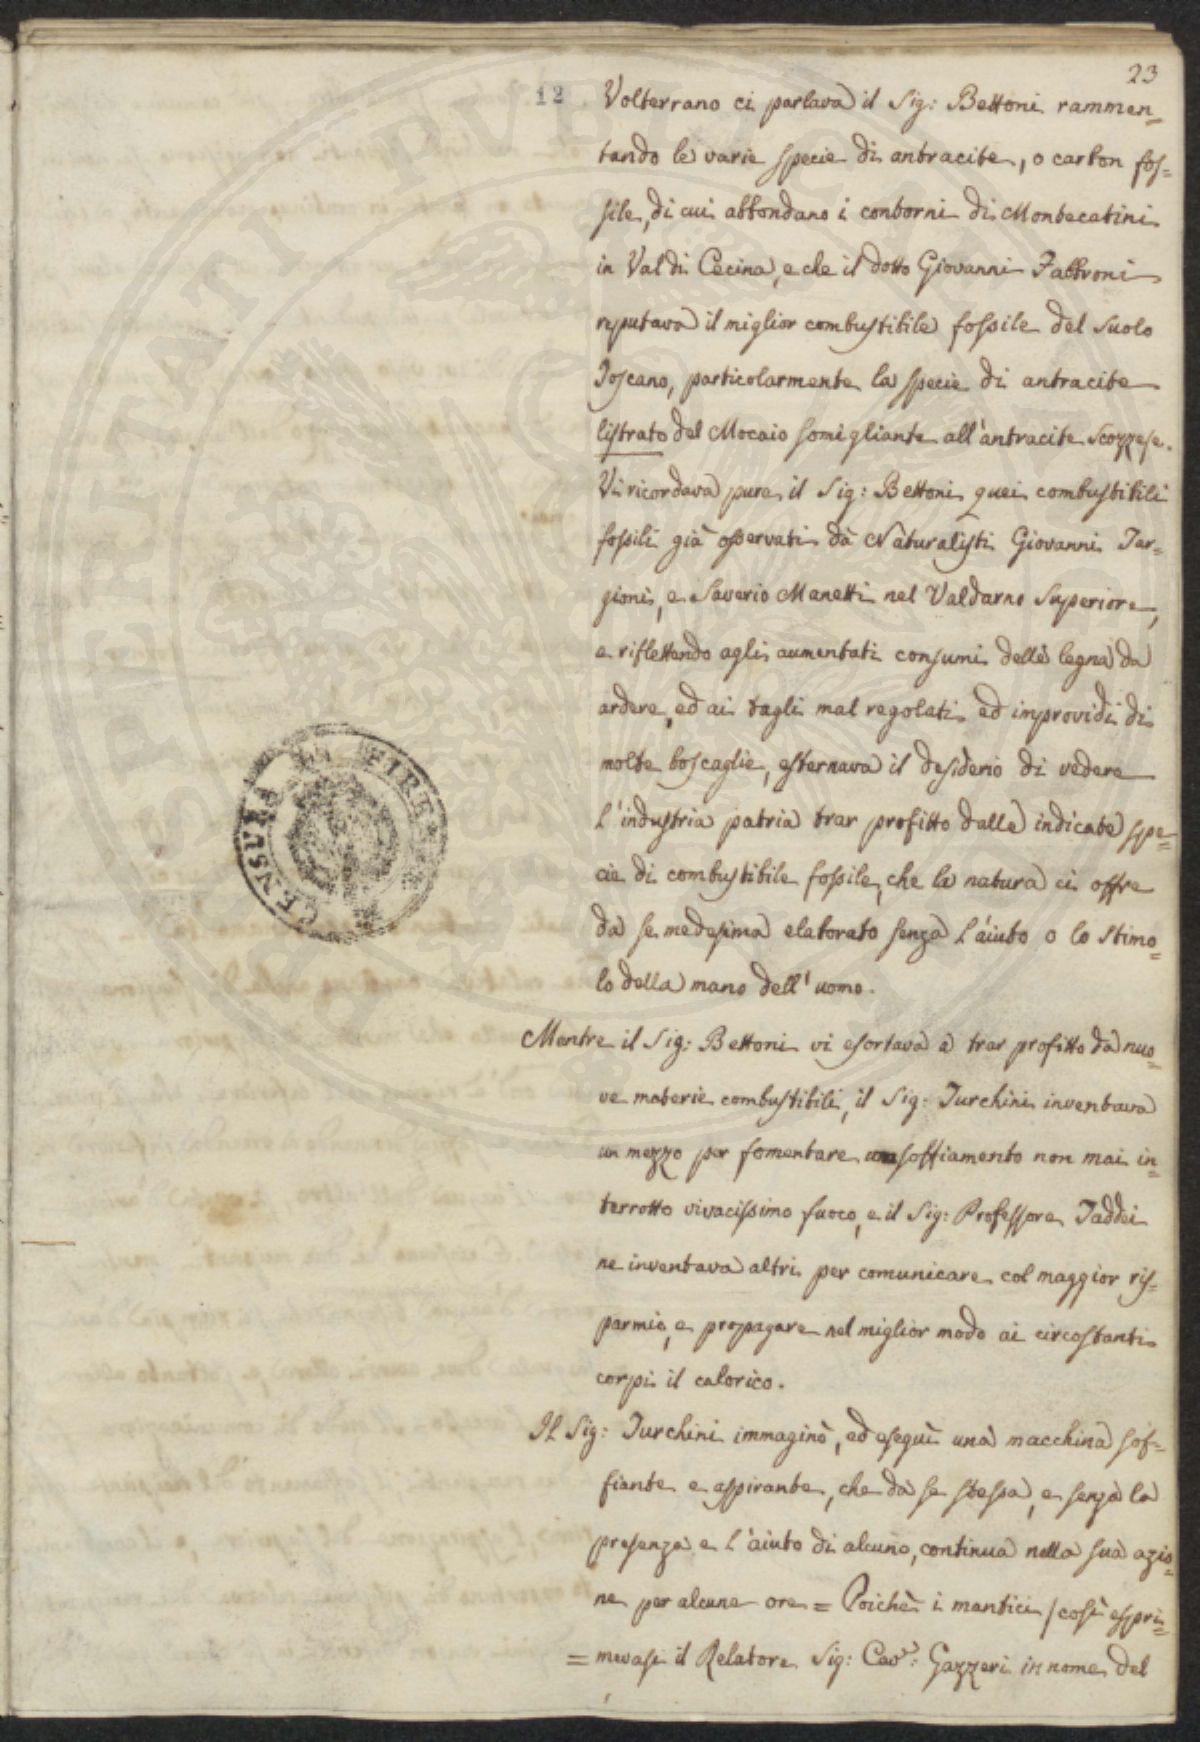 23
12. Volterrano ci parlava il Sig: Bettoni rammen=
tando le varie specie di antracite, o carbon fos=
sile, di cui abbondano i contorni di Montecatini
in Val di Cecina, e che il dotto Giovanni Fabbroni
reputava il miglior combustibile fossile del suolo
Toscano, particolarmente la specie di antracite
listrato del Mocaio somigliante all'antracite Scozzese.
Vi ricordava pure il Sig: Bettoni quei combustibili
fossili già osservati dà Naturalisti Giovanni Tar=
gioni, e Saverio Manetti nel Valdarno Superiore,
e riflettendo agli aumentati consumi delle legna da
ardere, ed ai tagli mal regolati ed improvidi di
molte boscaglie, esternava il desiderio di vedere
l'industria patria trar profitto dalle indicate spe=
cie di combustibile fossile, che la natura ci offre
da se medesima elaborato senza l'aiuto o lo stimo=
lo della mano dell'uomo.
Mentre il Sig: Bettoni vi esortava a trar profitto da nuo=
ve materie combustibili, il Sig: Turchini inventava
un mezzo per fomentare con soffiamento non mai in=
terrotto vivacissimo fuoco, e il Sig: Professore Taddei
ne inventava altri per comunicare col maggior ris=
parmio, e propagare nel miglior modo ai circostanti
corpi il calorico.
Il Sig: Turchini immaginò, ed eseguì una macchina sof=
fiante e aspirante, che da se stessa, e senza la
presenza e l'aiuto di alcuno, continua nella sua azio=
ne per alcune ore = Poichè i mantici /così espri=
= mevasi il Relatore Sig: Cav:r Gazzeri in nome del
CENSURA
FIRE